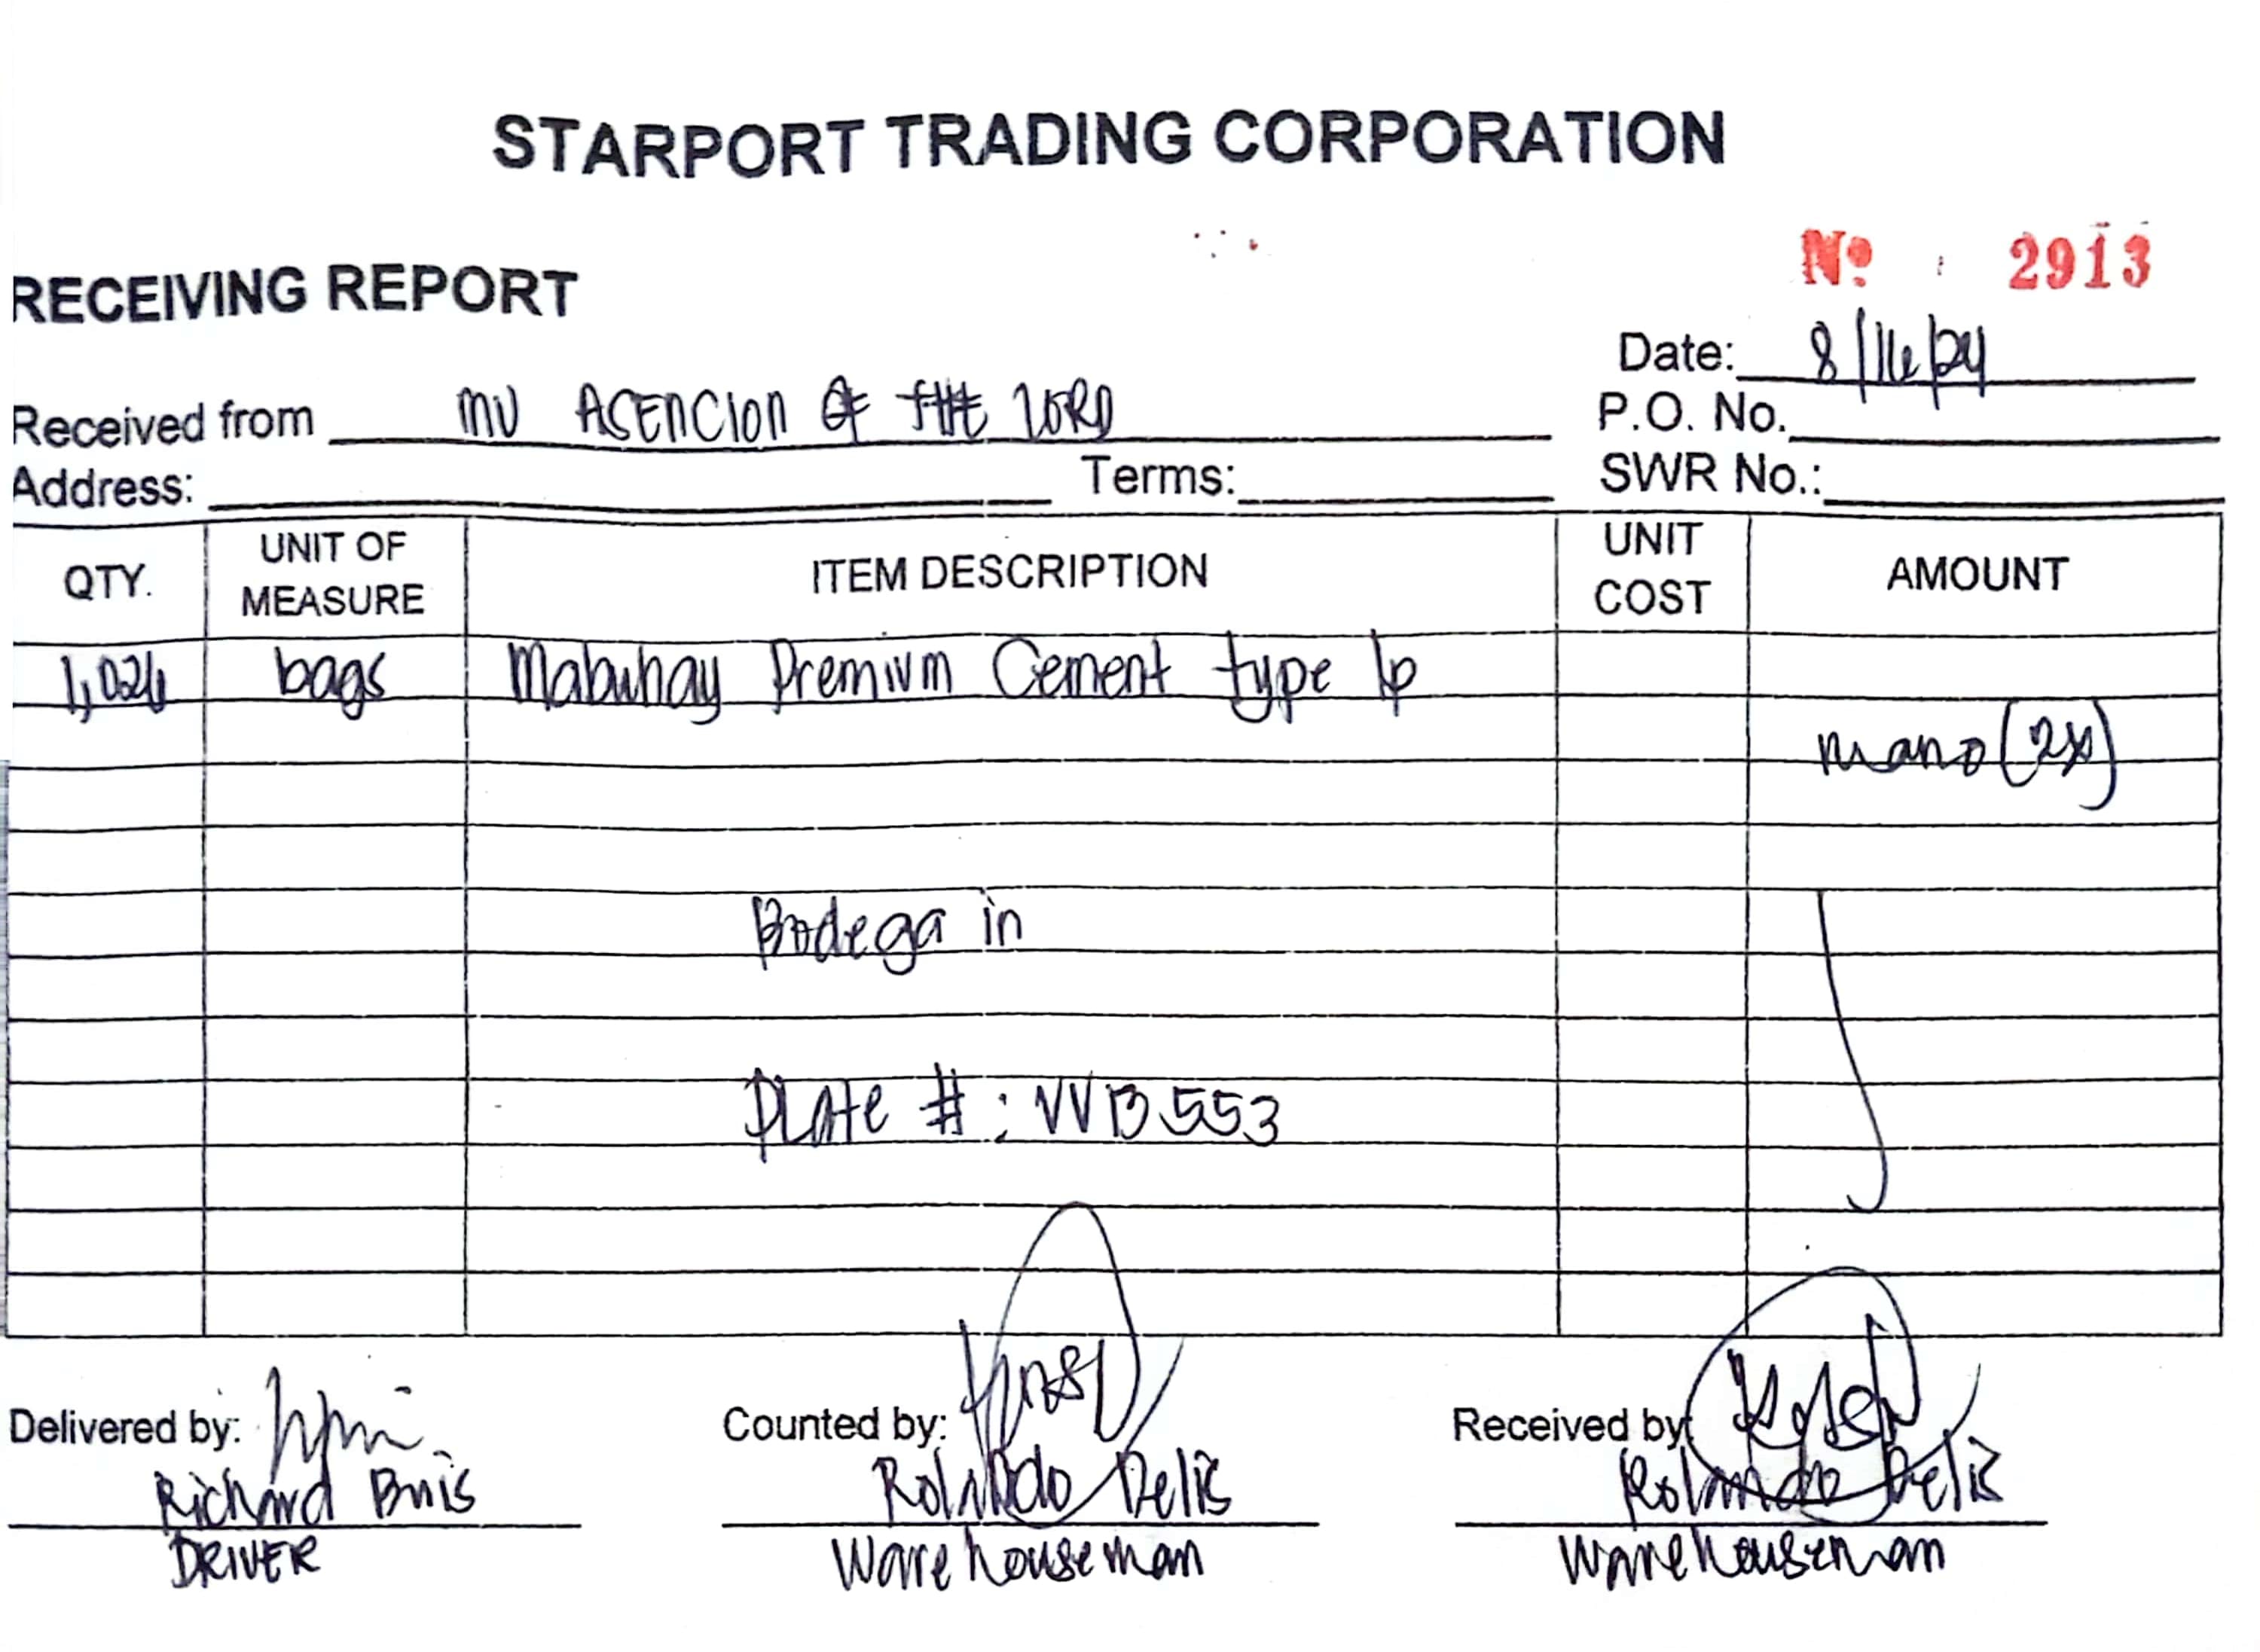 STARPORT TRADING CORPORATION
Nº 2913
RECEIVING REPORT
Date: 8/16/24
Received from MV ASCENCION OF THE LORD
P.O. No.
Address: Terms: SWR No.:
QTY. UNIT OF MEASURE ITEM DESCRIPTION UNIT COST AMOUNT
bags Mabuhay Premium Cement type 1p
mano (2x)
Bodega in
Plate #: VVB 553
Delivered by: Counted by: Received by:
Richard Rolando Delis Rolando Delis
DRIVER Warehouseman Warehouseman